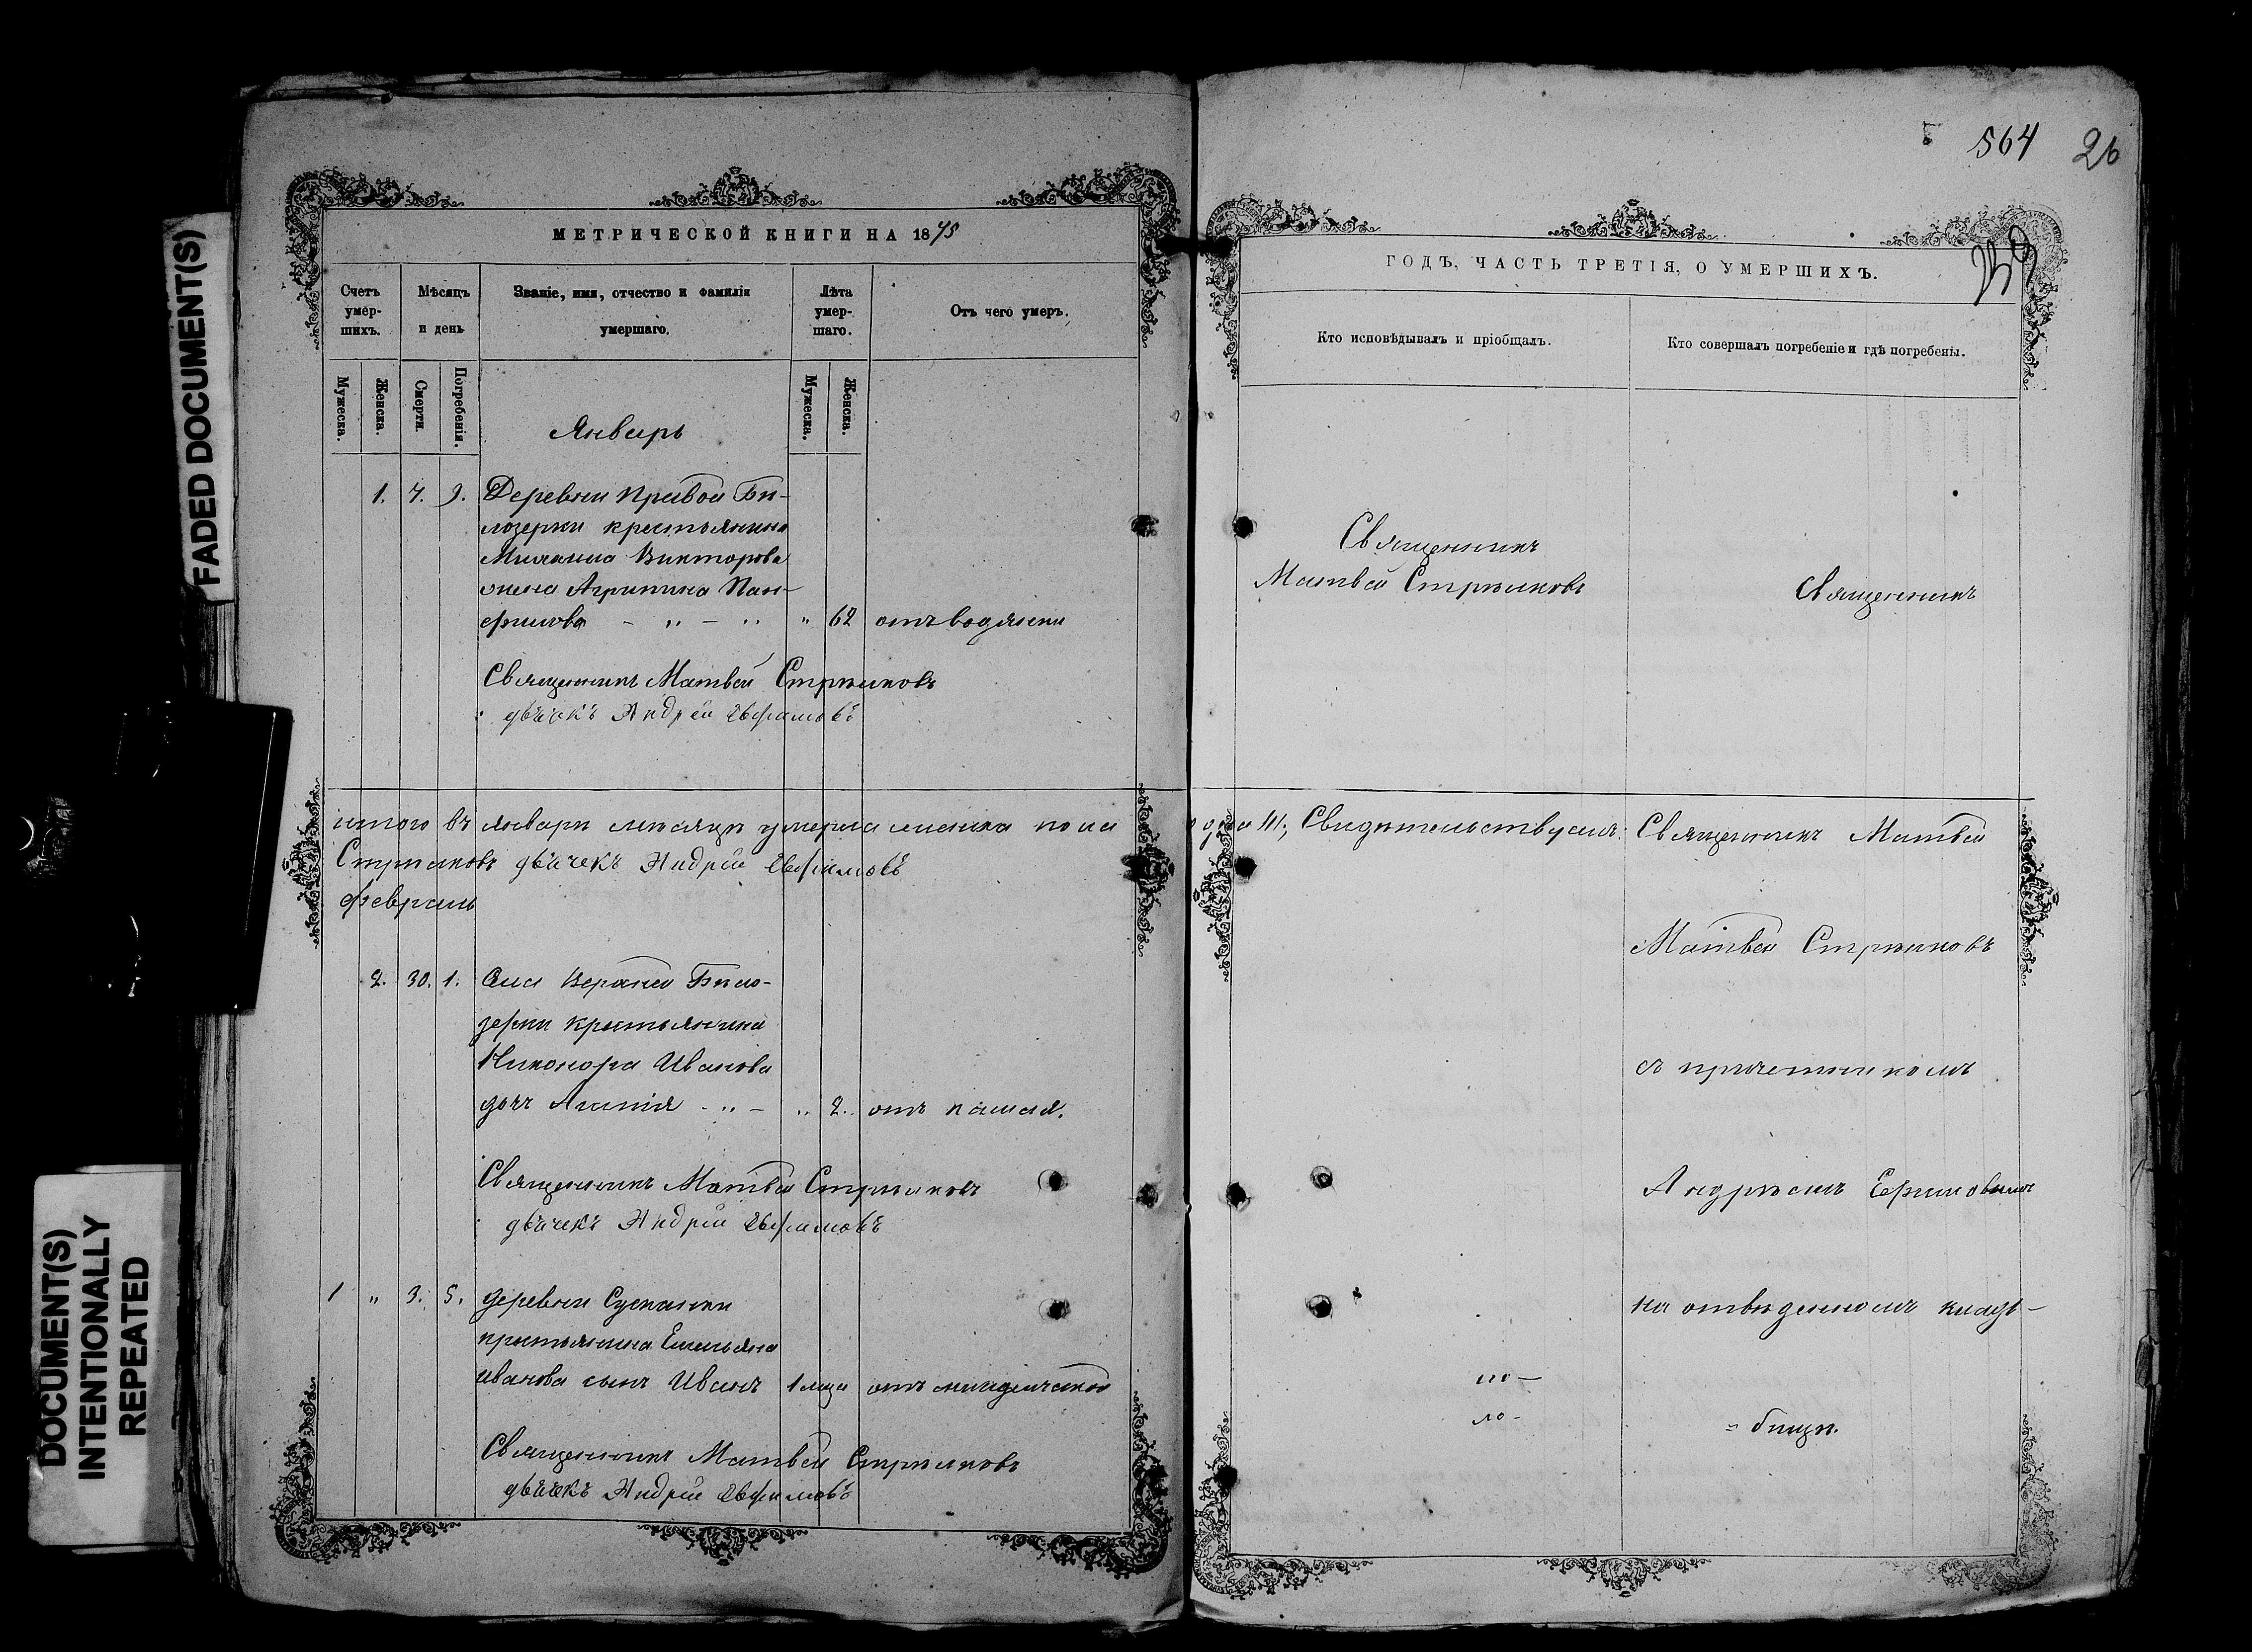 FADED DOCUMENT(S)
DOCUMENT(S)
INTENTIONALLY
REPEATED
МЕТРИЧЕСКОЙ КНИГИ НА 1875
Счетъ умер-шихъ.
Мѣсяцъ и день
Званіе, имя, отчество и фамилія умершаго.
Лѣта умер-шаго.
Отъ чего умеръ.
Мужеска.
Женска.
Смерти.
Погребенія.
Мужеска.
Женска.
Январь
1. 7. 9. Деревни Правой Бѣ-
лозерки крестьянина
Викторова
жена Агрипина Пан-
филова " 62 отъ водянки
Священникъ Матвей Стрѣлковъ
дьячекъ Андрей Евфимовъ
итого въ январѣ мѣсяцѣ умерла женска пола
Стрѣлковъ дьячекъ Андрей Евфимовъ
февраль
2. 30. 1. Села Верхней Бѣло-
зерки крестьянина
Никонора Иванова
дочь " 2. отъ кашля.
Священникъ Матвей Стрѣлковъ
дьячекъ Андрей Евфимовъ
1 " 3. 5. деревни
крестьянина Емельяна
Иванова сынъ Иванъ отъ младенческой
Священникъ Матвей Стрѣлковъ
дьячекъ Андрей Евфимовъ
564 26
ГОДЪ, ЧАСТЬ ТРЕТІЯ, О УМЕРШИХЪ.
Кто исповѣдывалъ и пріобщалъ.
Кто совершалъ погребеніе и гдѣ погребены.
Священникъ
Матвей Стрѣлковъ
Священникъ
одна Свидѣтельствуемъ: Священникъ Матвей
Матвей Стрѣлковъ
съ причетникомъ
Андреемъ Ефимовымъ
на отведенномъ клад-
= бищѣ.